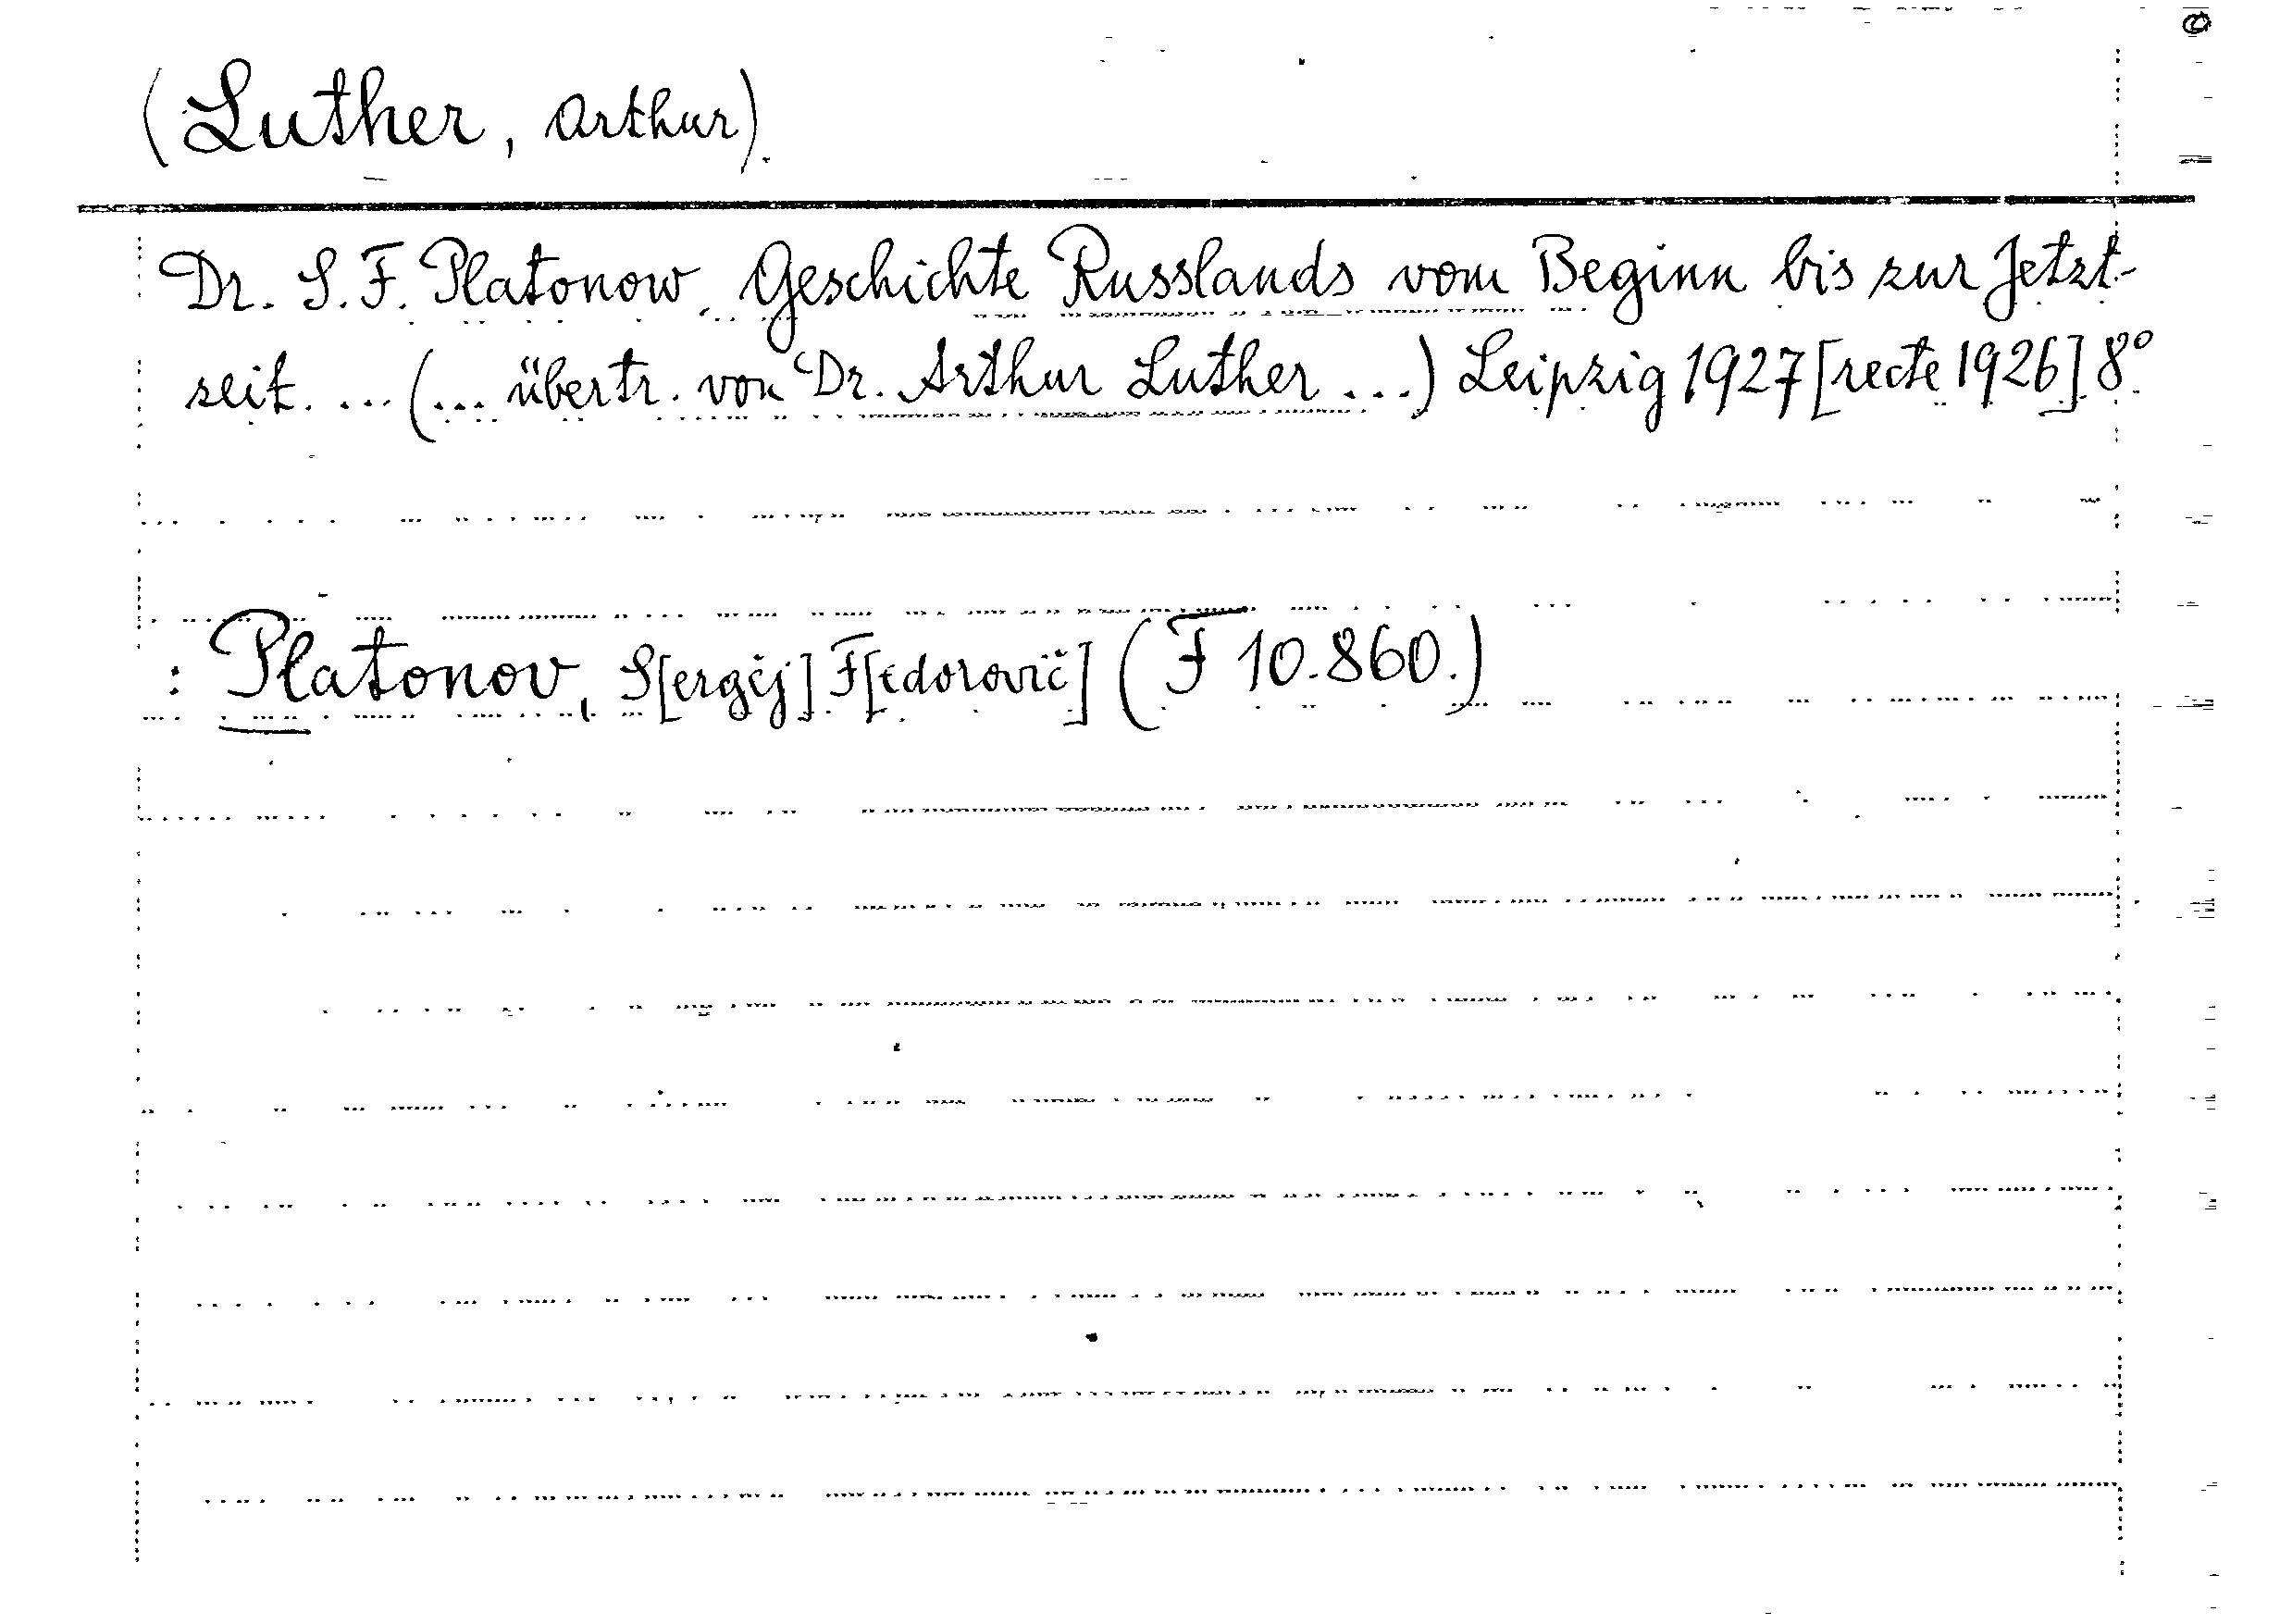 (Luther, Arthur).
Dr. S. F. Platonow. Geschichte Russlands vom Beginn bis zur Jetzt-
zeit. ... (... übertr. von Dr. Arthur Luther ...) Leipzig 1927 [recte 1926] 8°.
: Platonov, S[ergěj] F[edorovič] (F 10.860.)